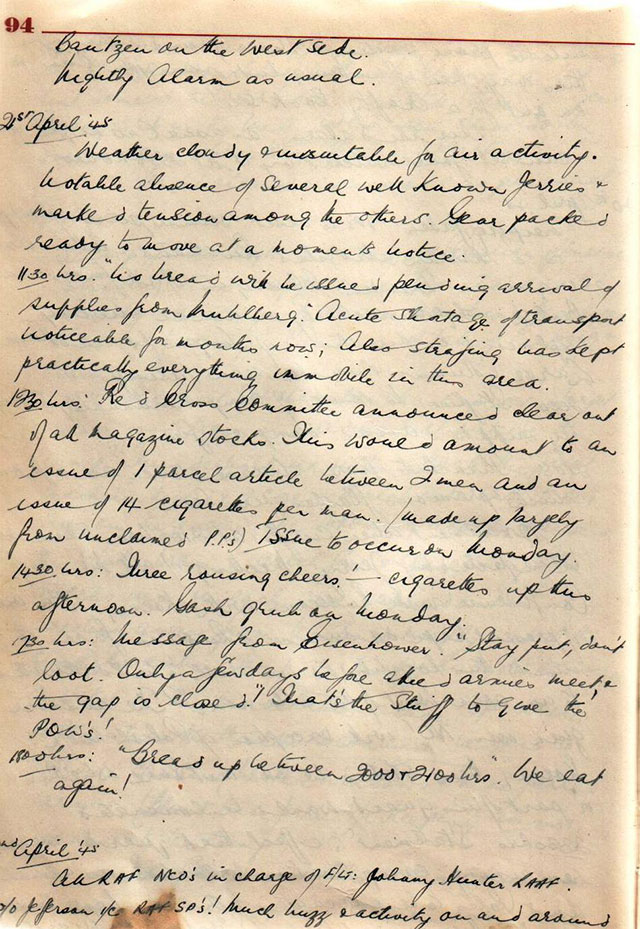 94
Bautzen on the West side.
Nightly Alarm as usual.
21st April '45
Weather cloudy & unsuitable for air activity.
Notable absence of several well known Jerries &
marked tension among the others. Gear packed
ready to move at a moments notice.
1130 hrs. "No bread will be issued pending arrival of
supplies from Muhlberg." Acute shortage of transport
noticeable for months now; Also strafing has kept
practically everything immobile in this area.
1230 hrs: Red Cross Committee announced clear out
of all magazine stocks. This would amount to an
issue of 1 parcel article between 2 men and an
issue of 14 cigarettes per man. (made up largely
from unclaimed P.P.'s) Issue to occur on Monday.
1430 hrs: Three rousing cheers! — cigarettes up this
afternoon. Gash grub on Monday.
1730 hrs: Message from Eisenhower. "Stay put, don't
loot. Only a few days before allied armies meet &
the gap is closed." That's the stuff to give the
POW's!
1800 hrs: "Bread up between 2000 & 2100 hrs". We eat
again!
nd April '45
All RAF NCO's in charge of F/Lt: Johnny Hunter RAAF.
W/O Jefferson i/c RAF SP's! Much buzz & activity on and around